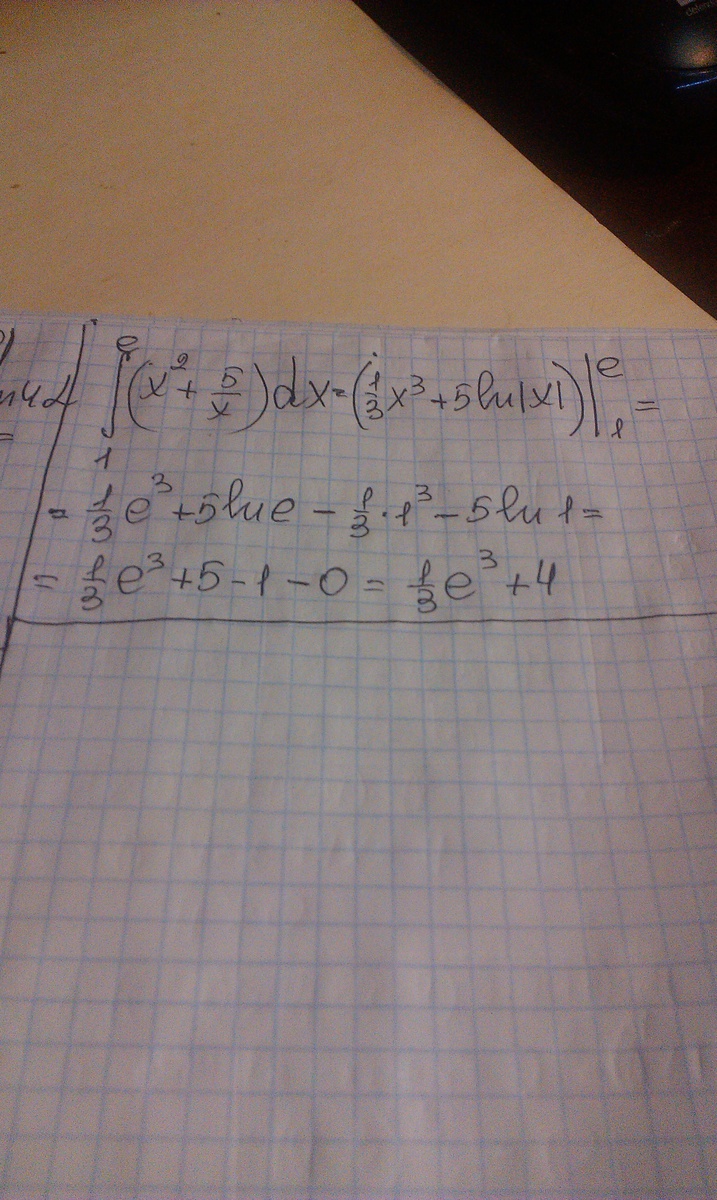 ∫₁ᵉ (x² + 5/x) dx = (1/3 x³ + 5 ln|x|) |₁ᵉ =
= 1/3 e³ + 5 ln e − 1/3 · 1³ − 5 ln 1 =
= 1/3 e³ + 5 − 1 − 0 = 1/3 e³ + 4